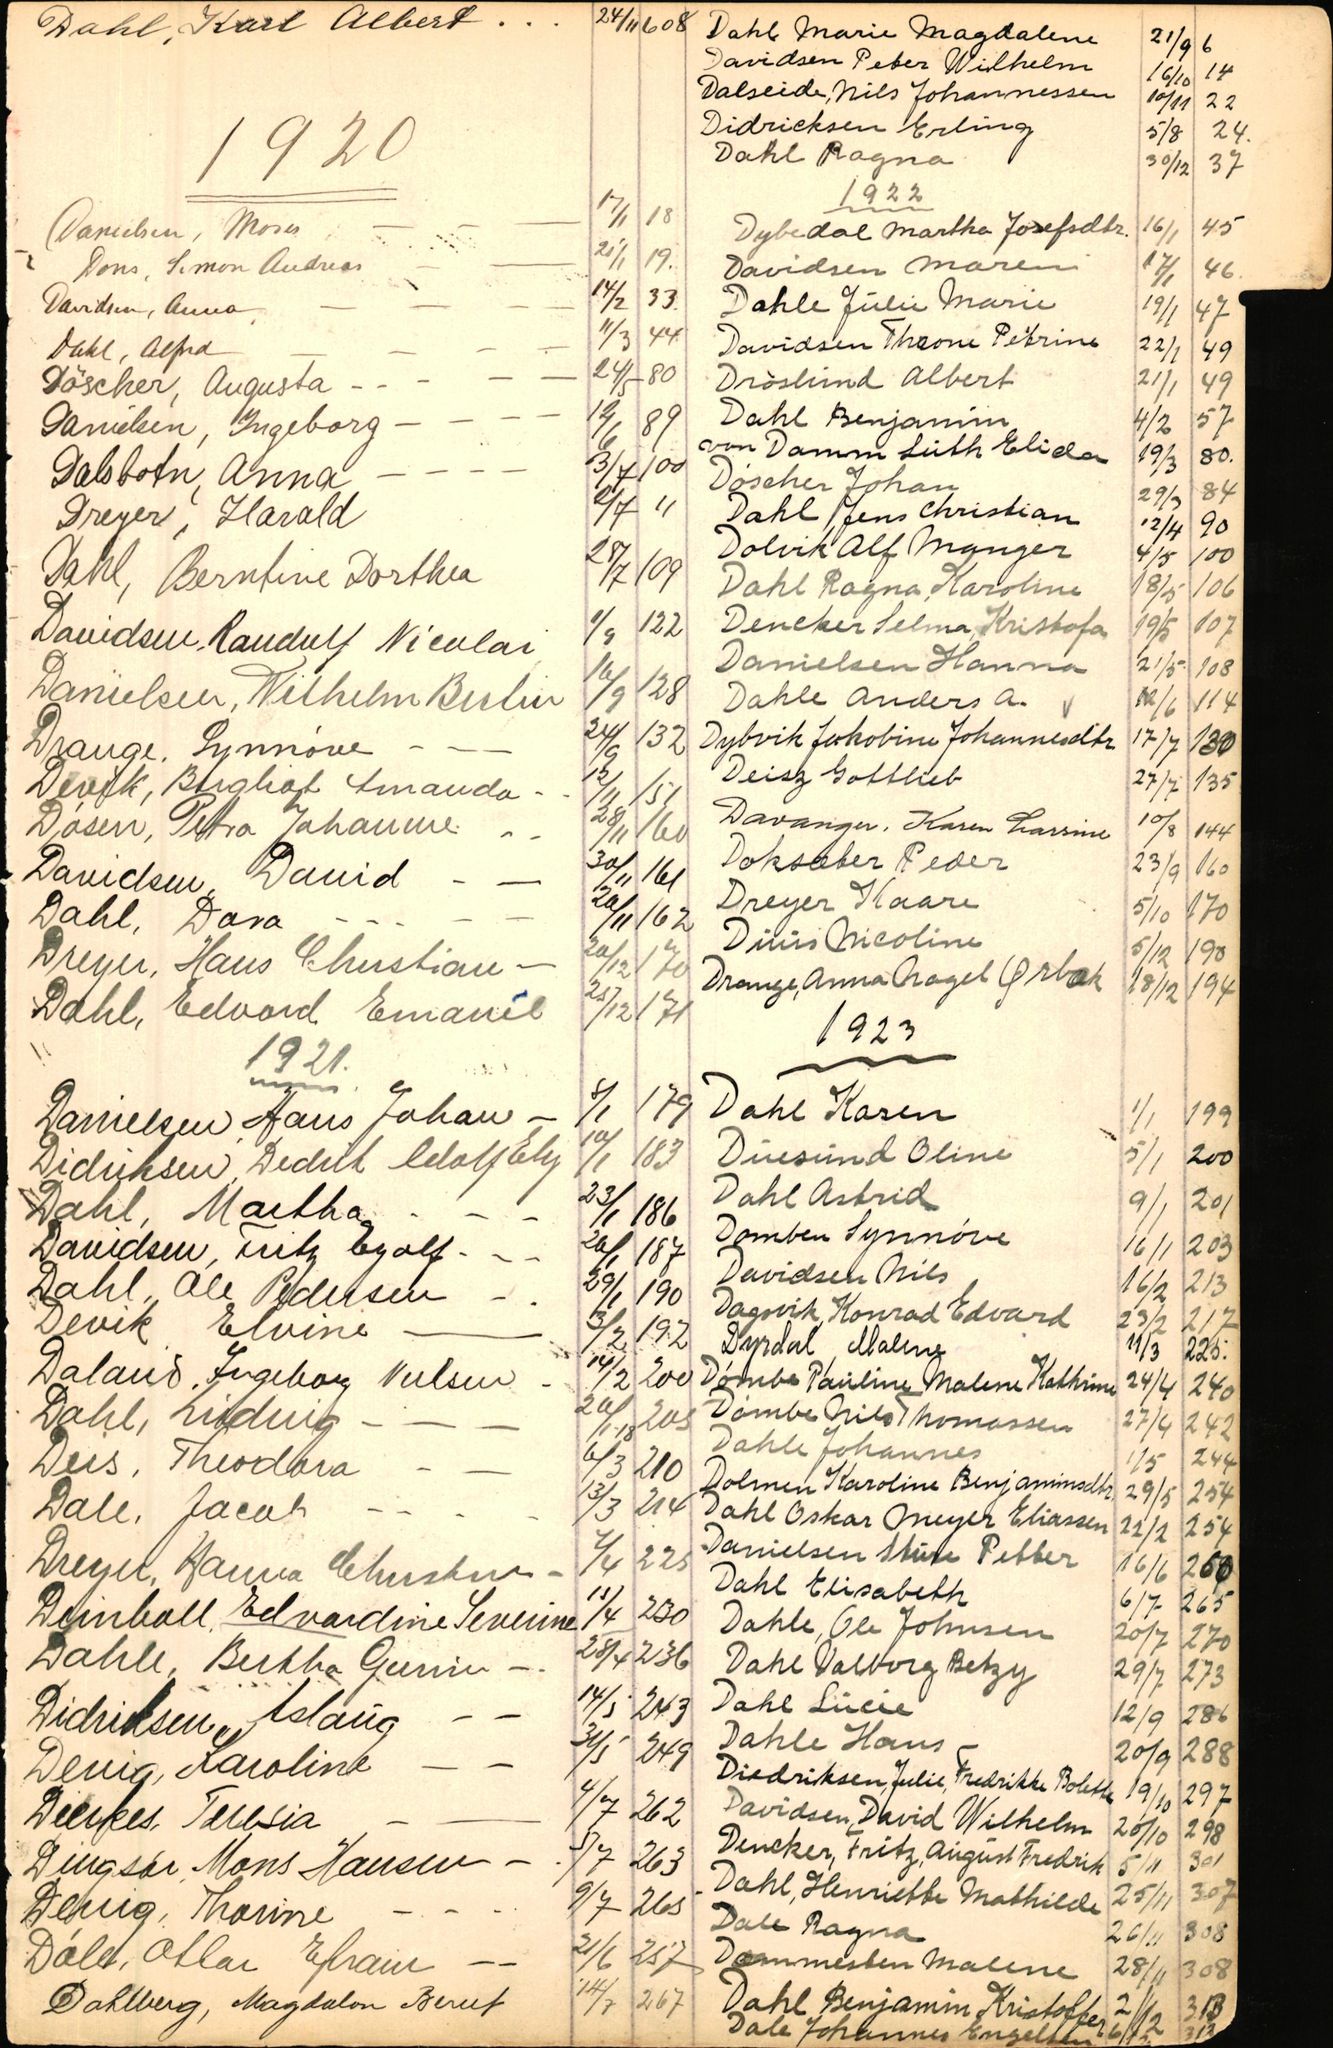 Dahl, Karl Albert . . . 24/11 608
1920
Danielsen, Moses 17/1 18
Dons, Simon Andreas 21/1 19.
Davidsen, Anna 14/2 33
Dahl, Alfred 11/3 44
Döscher, Augusta 24/5 80
Danielsen, Ingeborg 12/6 89
Dalsbotn, Anna 3/7 100
Dreyer, Harald 2/7 "
Dahl, Berntine Dorthea 28/7 109
Davidsen, Randulf Nicolai 1/9 122
Danielsen, Wilhelm Berlin 16/9 128
Drange, Synnöve 24/9 132
Devik, Bergliot Amanda 12/11 151
Dösen, Petra Johanne 28/11 160
Davidsen, David 30/11 161
Dahl, Dora 20/11 162
Dreyer, Hans Christian 20/12 170
Dahl, Edvard Emanuel 25/12 171
1921.
Danielsen, Hans Johan 8/1 179
Didriksen, Dedrik Adolf 10/1 183
Dahl, Martha 23/1 186
Davidsen, Fritz Eyolf 20/1 187
Dahl, Ole Pedersen 29/1 190
Devik Elvine 3/2 192
Daland, Ingeborg Nielsen 14/2 200
Dahl, Ludvig 20/1-18 205
Deis, Theodora 6/3 210
Dale, Jacob 13/3 214
Dreyer, Hanna 7/4 225
Deinboll, Edvardine Severine 11/4 230
Dahle, Bertha 28/4 236
Didriksen, Aslaug 14/5 243
Devig, Karoline 31/5 249
Dierkes, Teresia 4/7 262
Dingsør, Mons Hansen 5/7 263
Devig, Thorine 9/7 265
Dale, Ottar Efraim 21/6 257
Dahlberg, Magdalon Berut 14/7 267
Dahl Marie Magdalene 21/9 6
Davidsen Peter Wilhelm 16/10 14
Dalseide, Nils Johannessen 10/11 22
Didricksen Erling 5/8 24.
Dahl Ragna 30/12 37
1922
Dybedal Martha Josefsdtr. 16/1 45
Davidsen Maren 17/1 46
Dahle Julie Marie 19/1 47
Davidsen Throne Petrine 22/1 49
Dröslund Albert 21/1 49
Dahl Benjamin 4/2 57
von Damm Luth Elida 19/3 80.
Döscher Johan 29/3 84
Dahl Jens Christian 12/4 90
Dolvik Alf Manger 4/5 100
Dahl Ragna Karoline 18/5 106
Dencker Selma Kristofa 19/5 107
Danielsen Hanna 21/5 108
Dahle Anders A. 12/6 114
Dybvik Jakobine Johannesdtr 17/7 130
Deisz Gottlieb 27/7 135
Davanger, Karen Larsine 10/8 144
Doksæter Peder 23/9 160
Dreyer Kaare 5/10 170
Duus Nicoline 5/12 190
Drange, Anna Nagel Ørbæk 18/12 194
1923
Dahl Karen 1/1 199
Duesund Oline 5/1 200
Dahl Astrid 9/1 201
Domben Synnöve 16/1 203
Davidsen Nils 16/2 213
Dagsvik Konrad Edvard 23/2 217
Dyrdal, Malene 11/3 225.
Dömbe Pauline Malene Kathrine 24/4 240
Dömbe Nils Thomassen 27/4 242
Dahle Johannes 1/5 244
Dolmen Karoline Benjaminsdtr. 29/5 254
Dahl Oskar Meyer Eliassen 22/2 254
Danielsen Sture Petter 16/6 260
Dahl Elisabeth 6/7 265
Dahle, Ole Johnsen 20/7 270
Dahl Valborg Betzy 29/7 273
Dahl Lucie 12/9 286
Dahle Hans 20/9 288
Diedriksen, Julie, Fredrikke Bolette 19/10 297
Davidsen, David Wilhelm 20/10 298
Dencker, Fritz, August Fredrik 5/11 301
Dahl, Henriette Mathilde 25/11 307
Dale Ragna 26/11 308
Dammesten Malene 28/11 308
Dahl Benjamin Kristoffer 2/12 313
Dale Johannes Engelsen 6/12 313